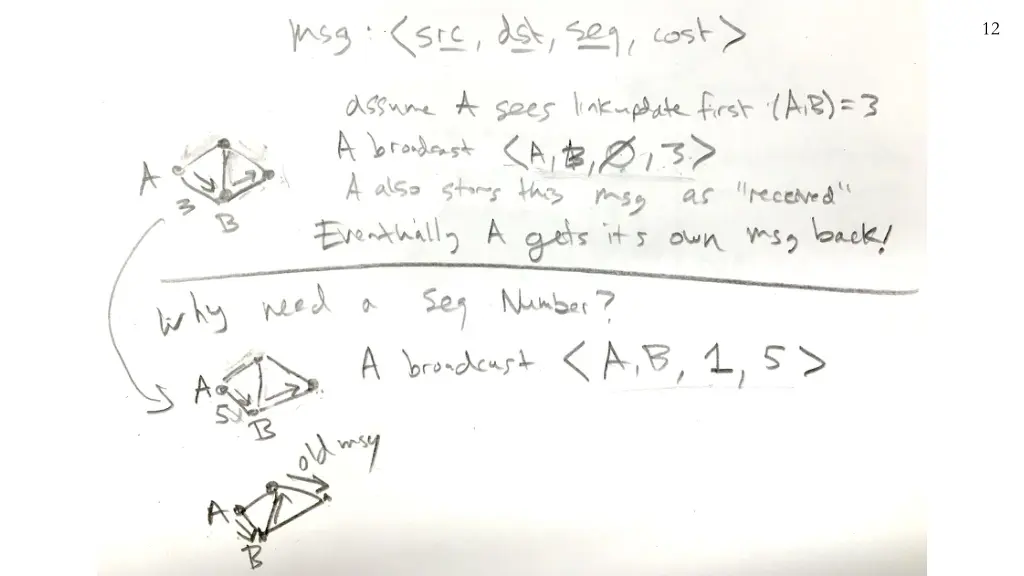 12
msg : <src, dst, seq, cost>
assume A sees linkupdate first (A,B)=3
A broadcast <A, B, Ø, 3>
A also stores this msg as "received"
Eventually A gets it's own msg back!
A
3
B
Why need a seq Number?
A broadcast <A, B, 1, 5>
A
5
B
old msg
A
B